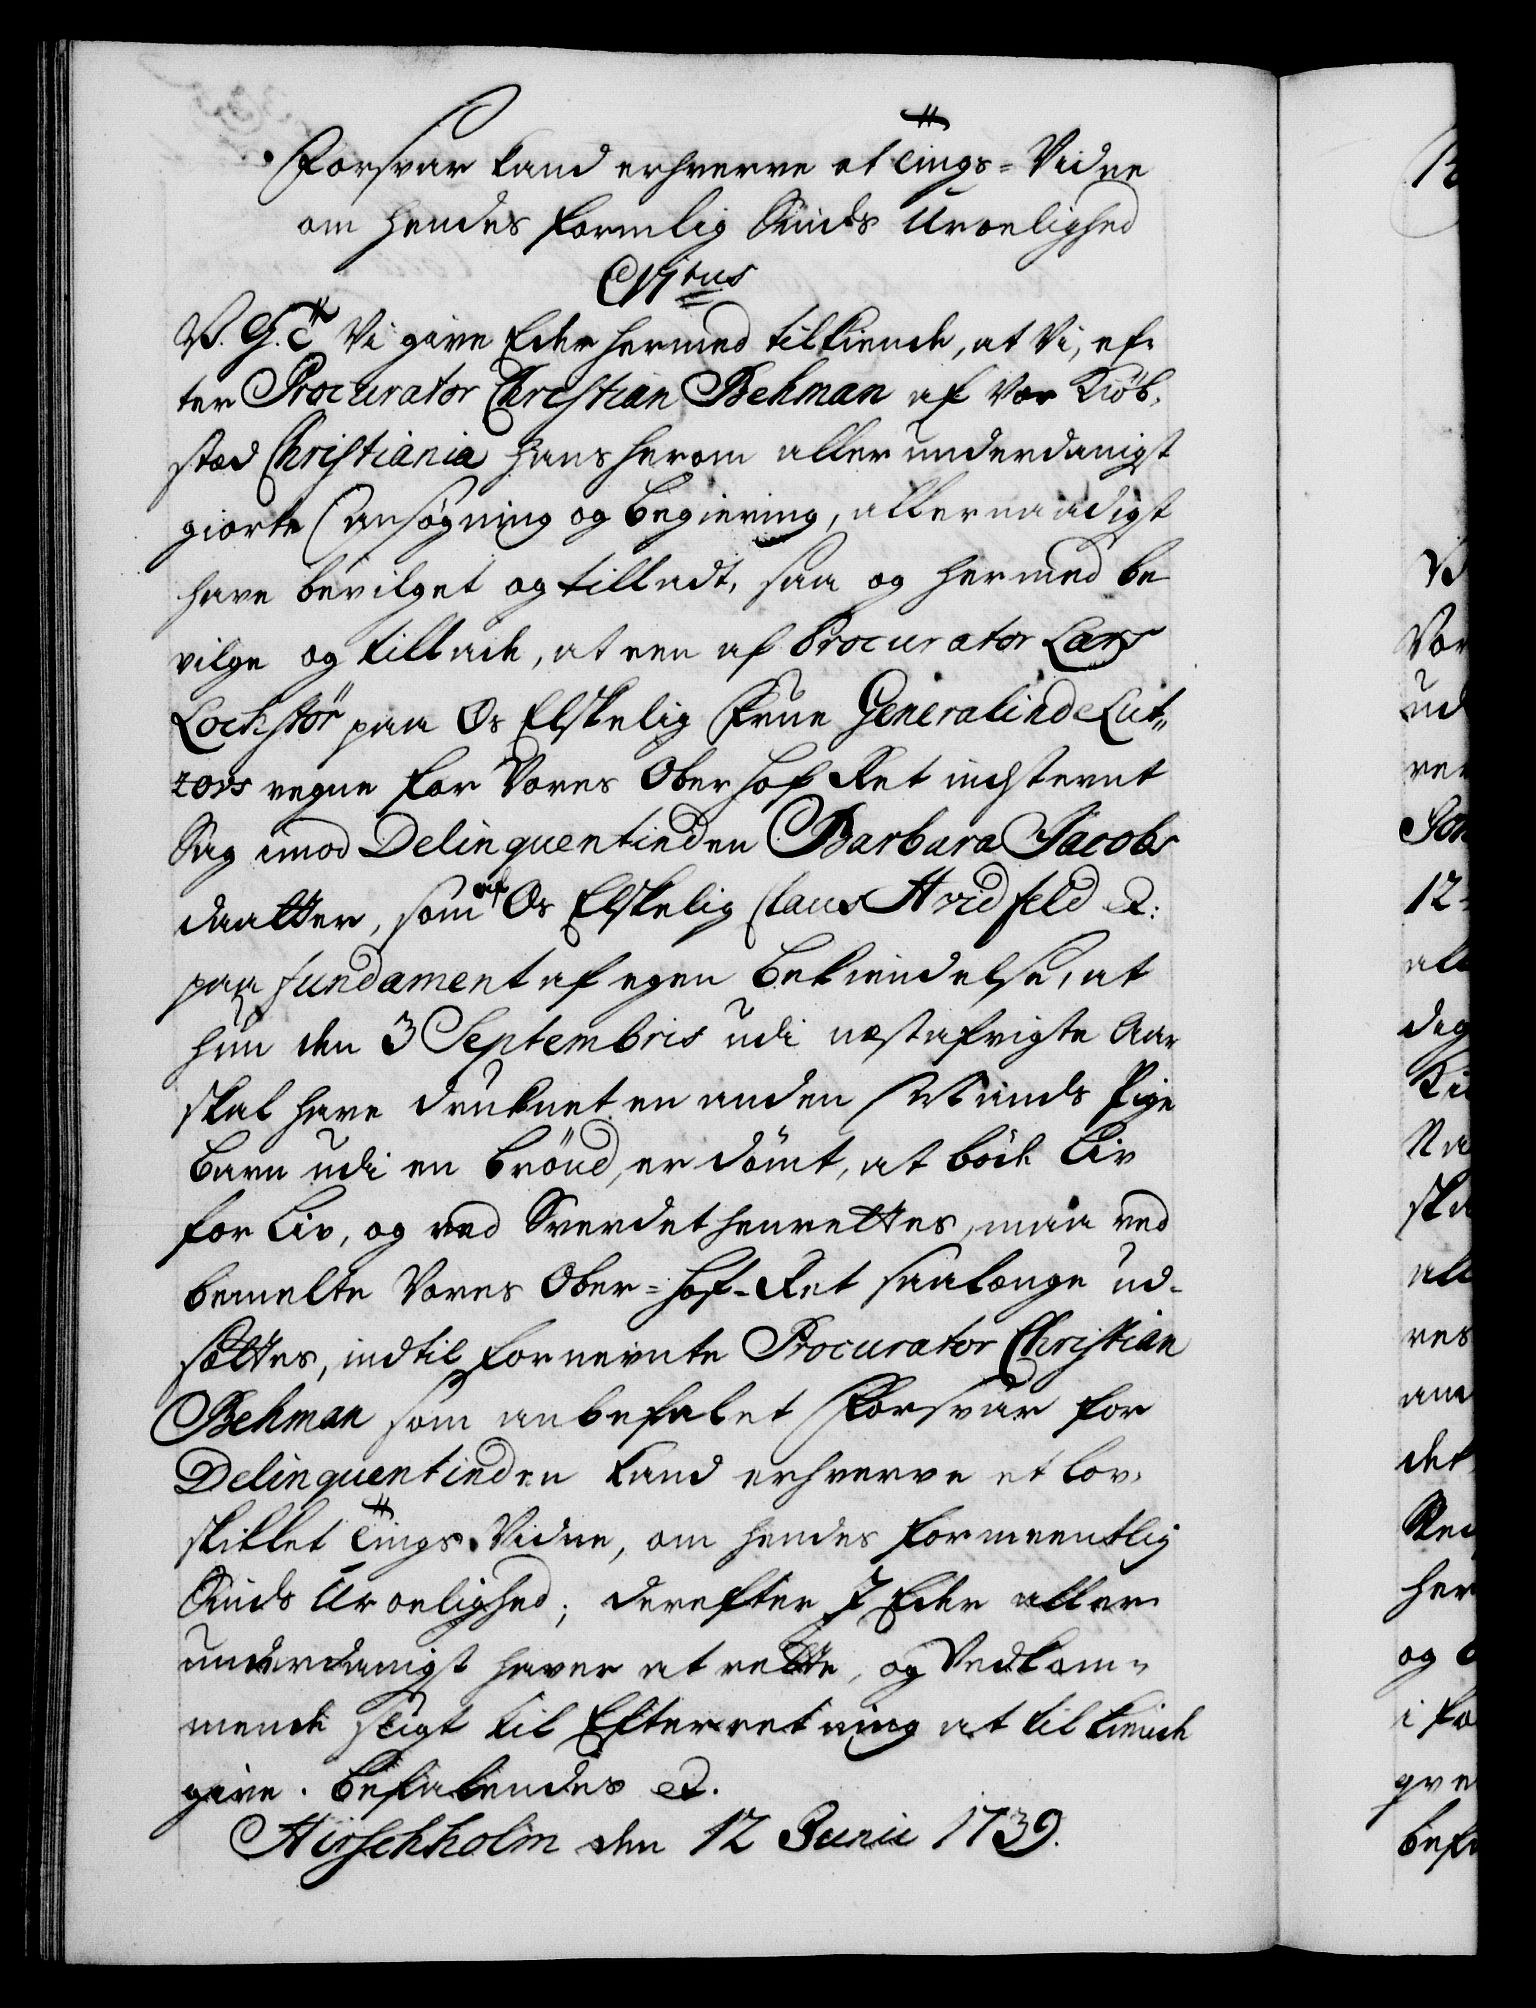 Forsvar kand erhverve et Tings-Vidne
om hendes formlig Sinds Uroelighed
C Vitus
V. G. T. Vi give Eder hermed tilkiende, at Vi, ef-
ter Procurator Christian Behman af Vor Kiöb-
stad Christiania hans herom allerunderdanigst
giorte Ansøgning og Begiering, allernaadigst
have bevilget og tilladt, saa og hermed be-
vilge og tillade, at een af Procurator Lars
Lochstör paa Os Elskelig Frue Generalinde Lut-
zows vegne for Vores Ober Hof Ret indstevnt
Sag imod Delinquentinden Barbara Jacobs
daatter, som af Os Elskelig Claus Hvidfeld &:
paa fundament af egen Bekiendelse, at
hun den 3 Septembris udi næstafvigte Aar
skal have druknet en anden Mands Pige
Barn udi en Brönd, er dömt, at böde Liv
for Liv, og ved Sverdet henrettes, maa ved
bemelte Vores Ober-Hof-Ret saalænge ud-
sættes, indtil fornevnte Procurator Christian
Behman som anbefalet Forsvar for
Delinquentinden kand erhverve et lov-
skikket Tings-Vidne, om hendes formeentlig
Sinds Uroelighed; derefter I Eder aller-
underdanigst haver at rette, og Vedkom-
mende sligt til Efterretning at tilkiende
give. Befalendes &.
Hirschholm den 12 Junii 1739.